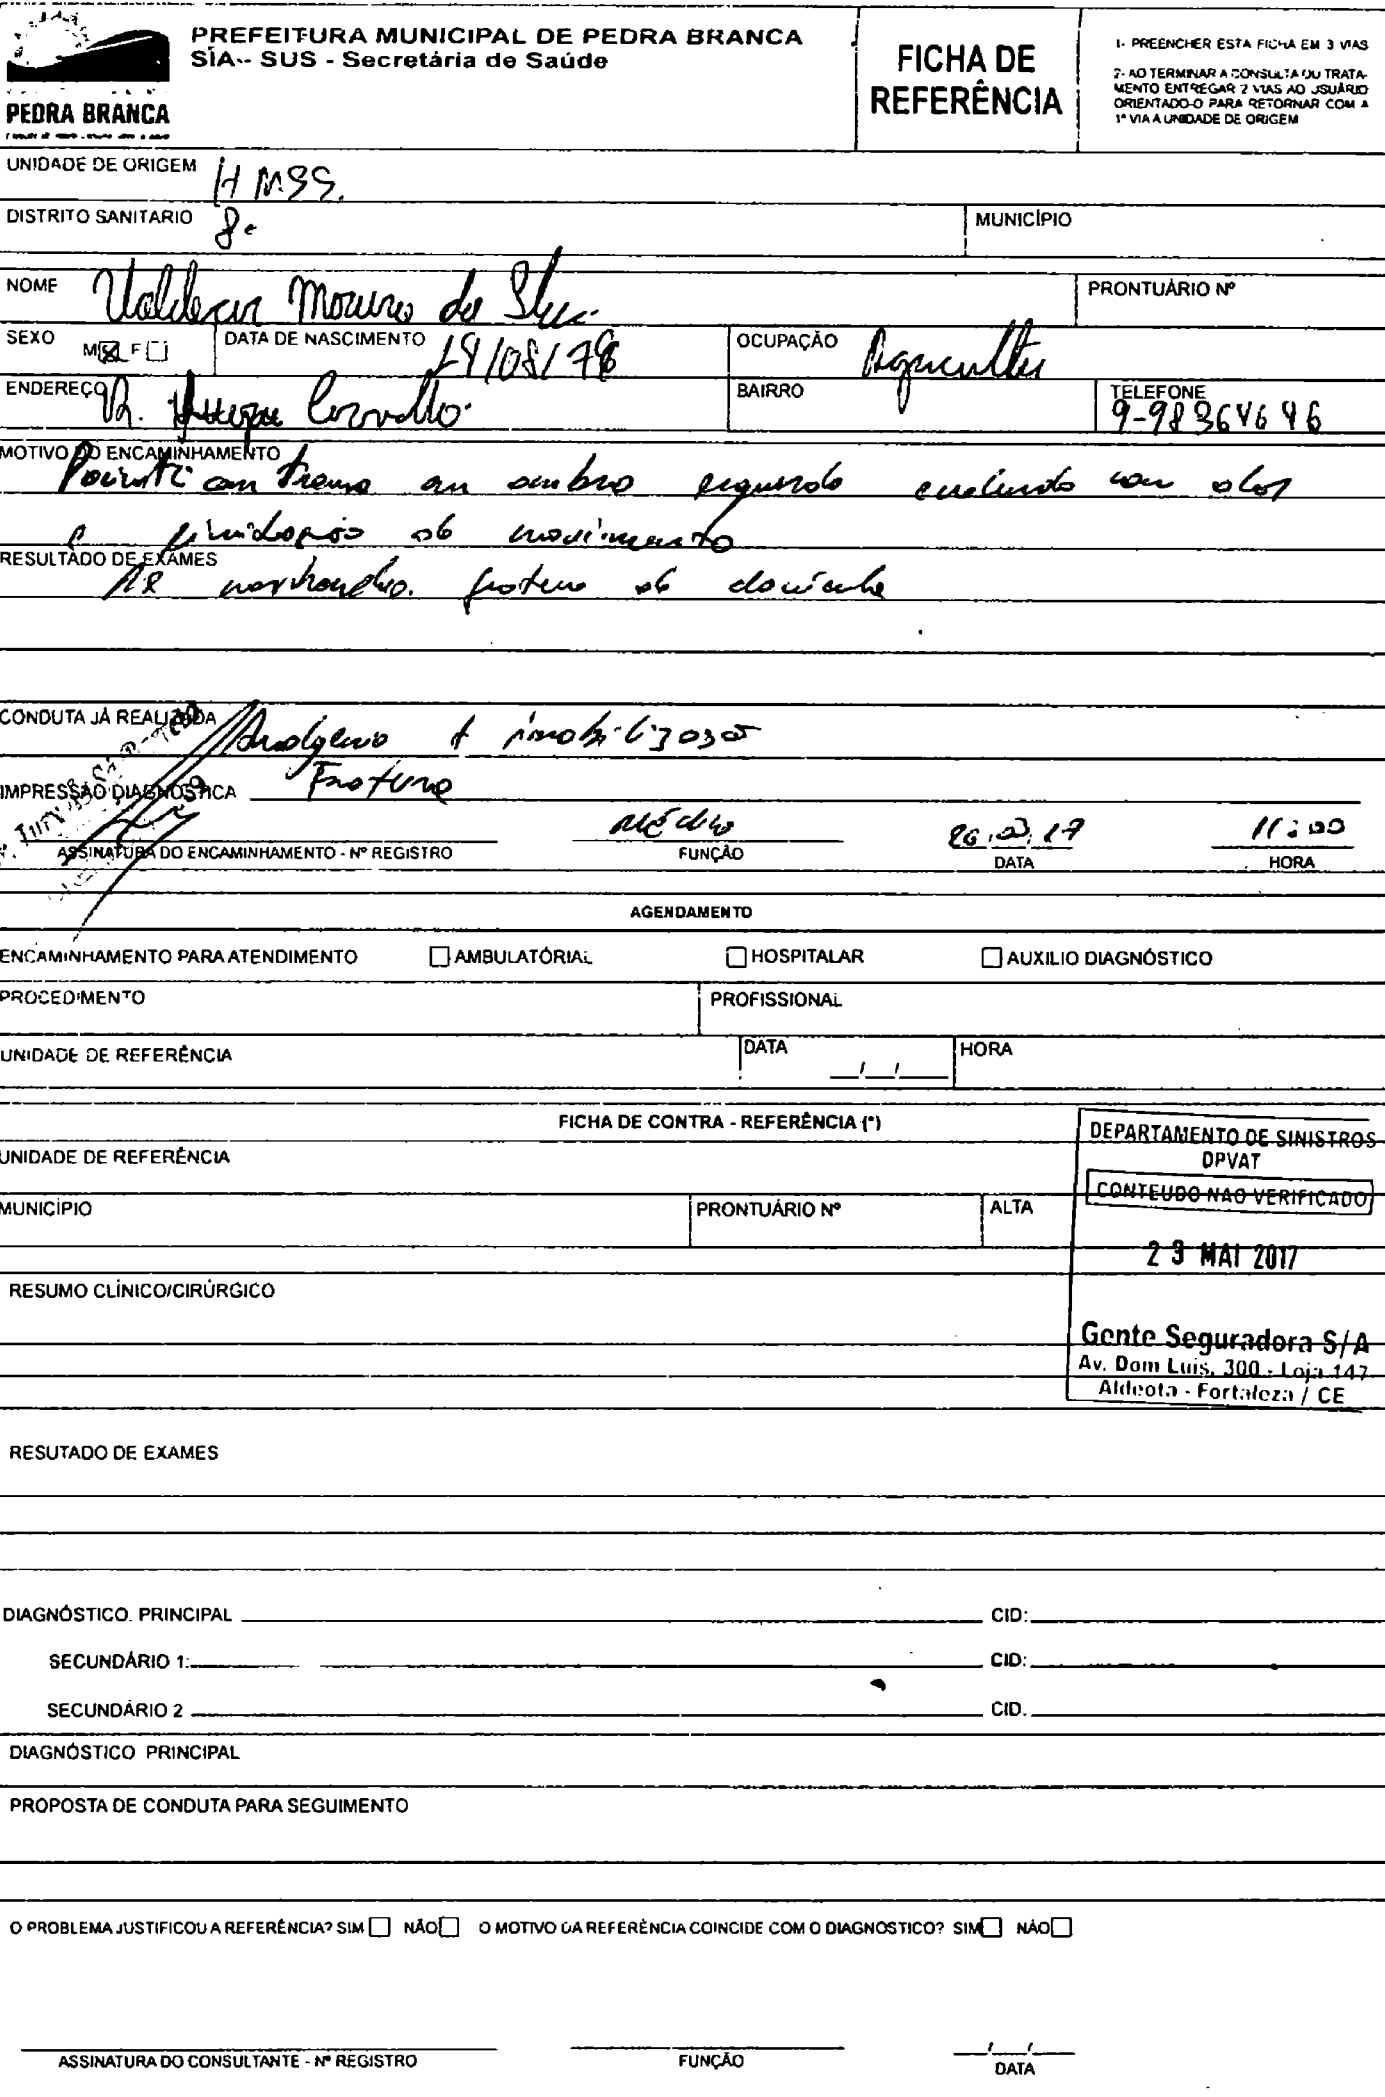 PREFEITURA MUNICIPAL DE PEDRA BRANCA
SIA-- SUS - Secretária de Saúde
PEDRA BRANCA
FICHA DE
REFERÊNCIA
1- PREENCHER ESTA FICHA EM 3 VIAS
2- AO TERMINAR A CONSULTA OU TRATA-
MENTO ENTREGAR 2 VIAS AO USUÁRIO
ORIENTADO-O PARA RETORNAR COM A
1ª VIA A UNIDADE DE ORIGEM
UNIDADE DE ORIGEM HMSS.
DISTRITO SANITARIO 8º
MUNICÍPIO
NOME Valdecir Moreno da Silva
PRONTUÁRIO Nº
SEXO M☒ F☐ DATA DE NASCIMENTO 19/08/78 OCUPAÇÃO Agricultor
ENDEREÇO R. Carvalho. BAIRRO TELEFONE
9-98364646
MOTIVO DO ENCAMINHAMENTO
Paciente com trauma em ombro esquerdo evoluindo com dor
e limitação de movimento
RESULTADO DE EXAMES
RX mostrando fratura de clavícula
CONDUTA JÁ REALIZADA Analgesia + imobilização
IMPRESSÃO DIAGNÓSTICA Fratura
médico 26.03.17 11:00
ASSINATURA DO ENCAMINHAMENTO - Nº REGISTRO FUNÇÃO DATA HORA
AGENDAMENTO
ENCAMINHAMENTO PARA ATENDIMENTO ☐ AMBULATÓRIAL ☐ HOSPITALAR ☐ AUXILIO DIAGNÓSTICO
PROCEDIMENTO PROFISSIONAL
UNIDADE DE REFERÊNCIA DATA __/__/____ HORA
FICHA DE CONTRA - REFERÊNCIA (*)
UNIDADE DE REFERÊNCIA
MUNICÍPIO PRONTUÁRIO Nº ALTA
DEPARTAMENTO DE SINISTROS
DPVAT
CONTEUDO NAO VERIFICADO
23 MAI 2017
Gente Seguradora S/A
Av. Dom Luis, 300 - Loja 147
Aldeota - Fortaleza / CE
RESUMO CLÍNICO/CIRÚRGICO
RESUTADO DE EXAMES
DIAGNÓSTICO. PRINCIPAL CID:
SECUNDÁRIO 1: CID:
SECUNDÁRIO 2 CID.
DIAGNÓSTICO PRINCIPAL
PROPOSTA DE CONDUTA PARA SEGUIMENTO
O PROBLEMA JUSTIFICOU A REFERÊNCIA? SIM ☐ NÃO ☐ O MOTIVO DA REFERÊNCIA COINCIDE COM O DIAGNOSTICO? SIM ☐ NÃO ☐
ASSINATURA DO CONSULTANTE - Nº REGISTRO FUNÇÃO __/__/__ DATA